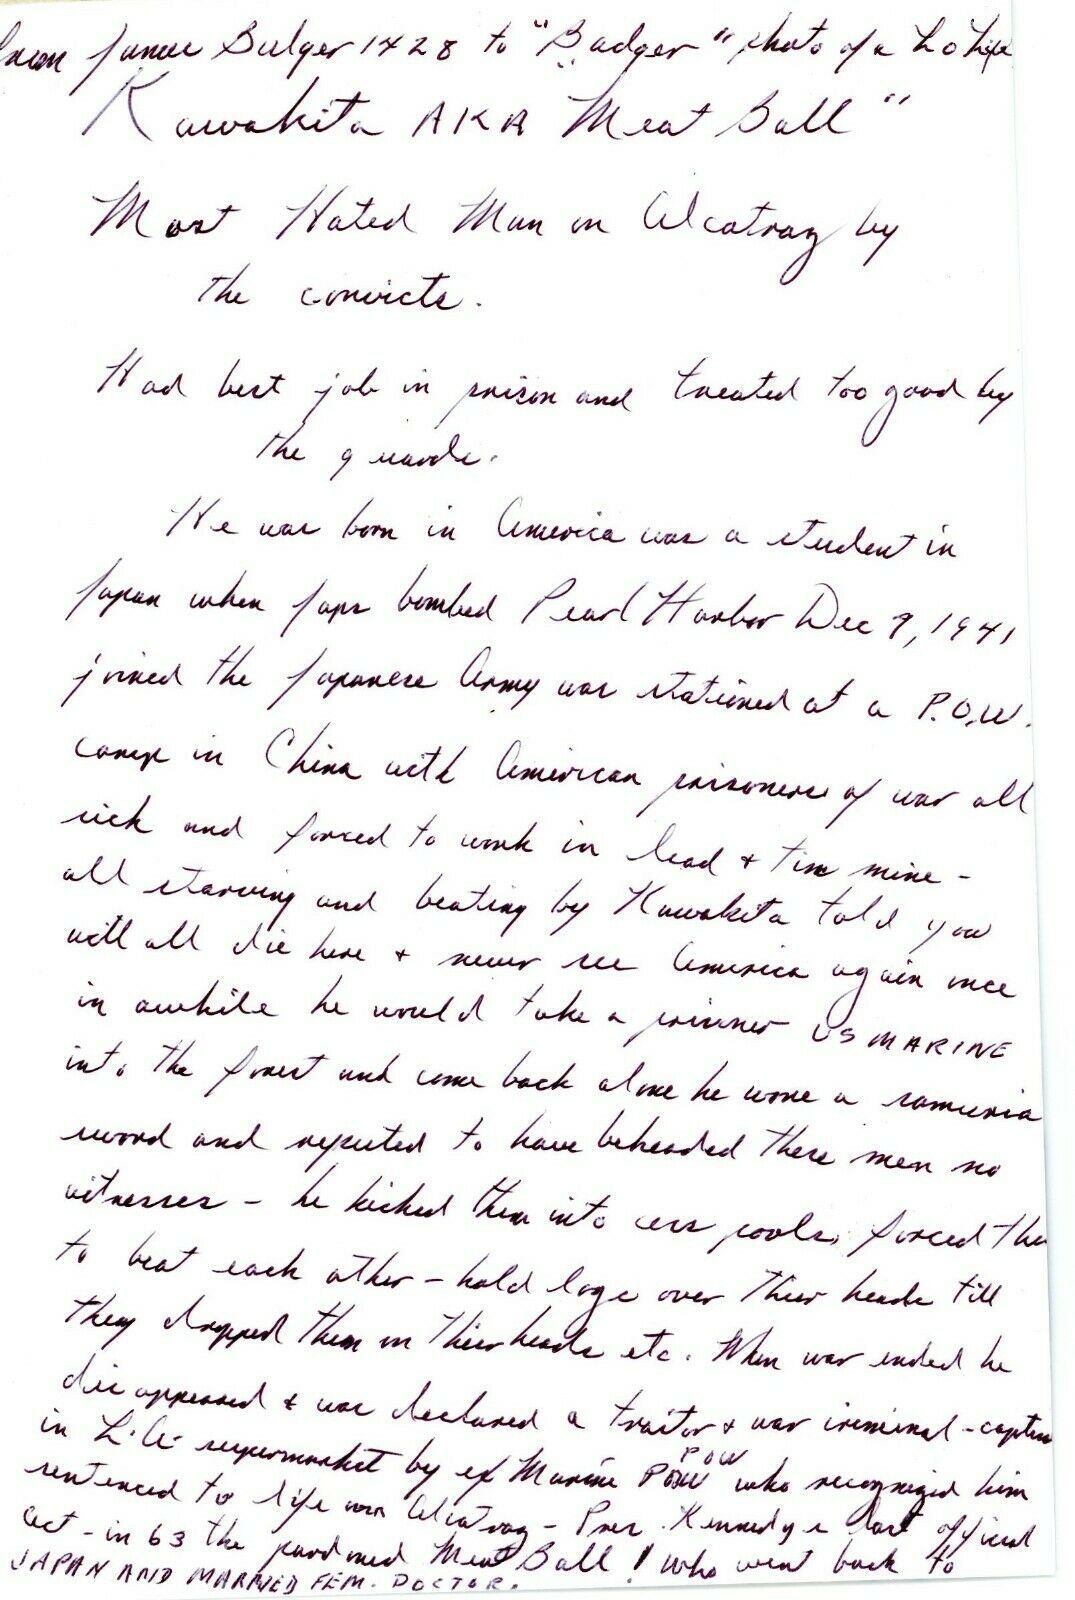 From James Bulger 1428 to "Badger" photo of a Lo Life
Kawakita AKA "Meat Ball"
Most Hated Man on Alcatraz by
the convicts.
Had best job in prison and treated too good by
the guards.
He was born in America was a student in
Japan when Japs bombed Pearl Harbor Dec 7, 1941
joined the Japanese Army was stationed at a P.O.W.
camp in China with American prisoners of war all
sick and forced to work in lead + tin mine -
all starving and beating by Kawakita told you
will all die here + never see America again once
in awhile he would take a prisoner US MARINE
into the forest and come back alone he wore a samuria
sword and reputed to have beheaded these men no
witnesses - he kicked them into cess pools, forced the
to beat each other - hold logs over thier heads till
they dropped them on thier heads etc. When war ended he
disappeared + was declared a traitor + war criminal - capture
in L.A. supermarket by ex Marine POW who recognized him
sentenced to life on Alcatraz - Pres. Kennedys last official
act - in 63 the pardoned Meat Ball! who went back to
JAPAN AND MARRIED FEM. DOCTOR.